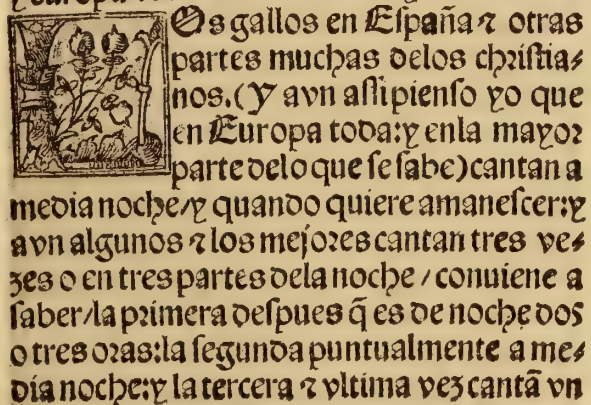 LOs gallos en España ⁊ otras
partes muchas delos christia⸗
nos.(Y avn assi pienso yo que
en Europa toda:y enla mayor
parte delo que se sabe)cantan a
media noche/y quando quiere amanescer:y
avn algunos ⁊ los mejores cantan tres ve⸗
zes o en tres partes dela noche / conuiene a
saber/la primera despues q̃ es de noche dos
o tres oras:la segunda puntualmente a me⸗
dia noche:y la tercera ⁊ vltima vez cantã vn